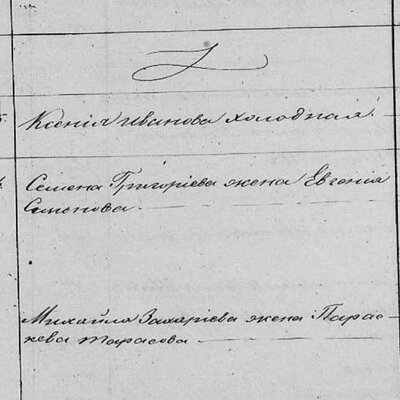 Ксенія Иванова Холодная.
Семена Григоріева жена Евгенія
Семенова.
Михайла Захаріева жена Парас-
кева Тарасова